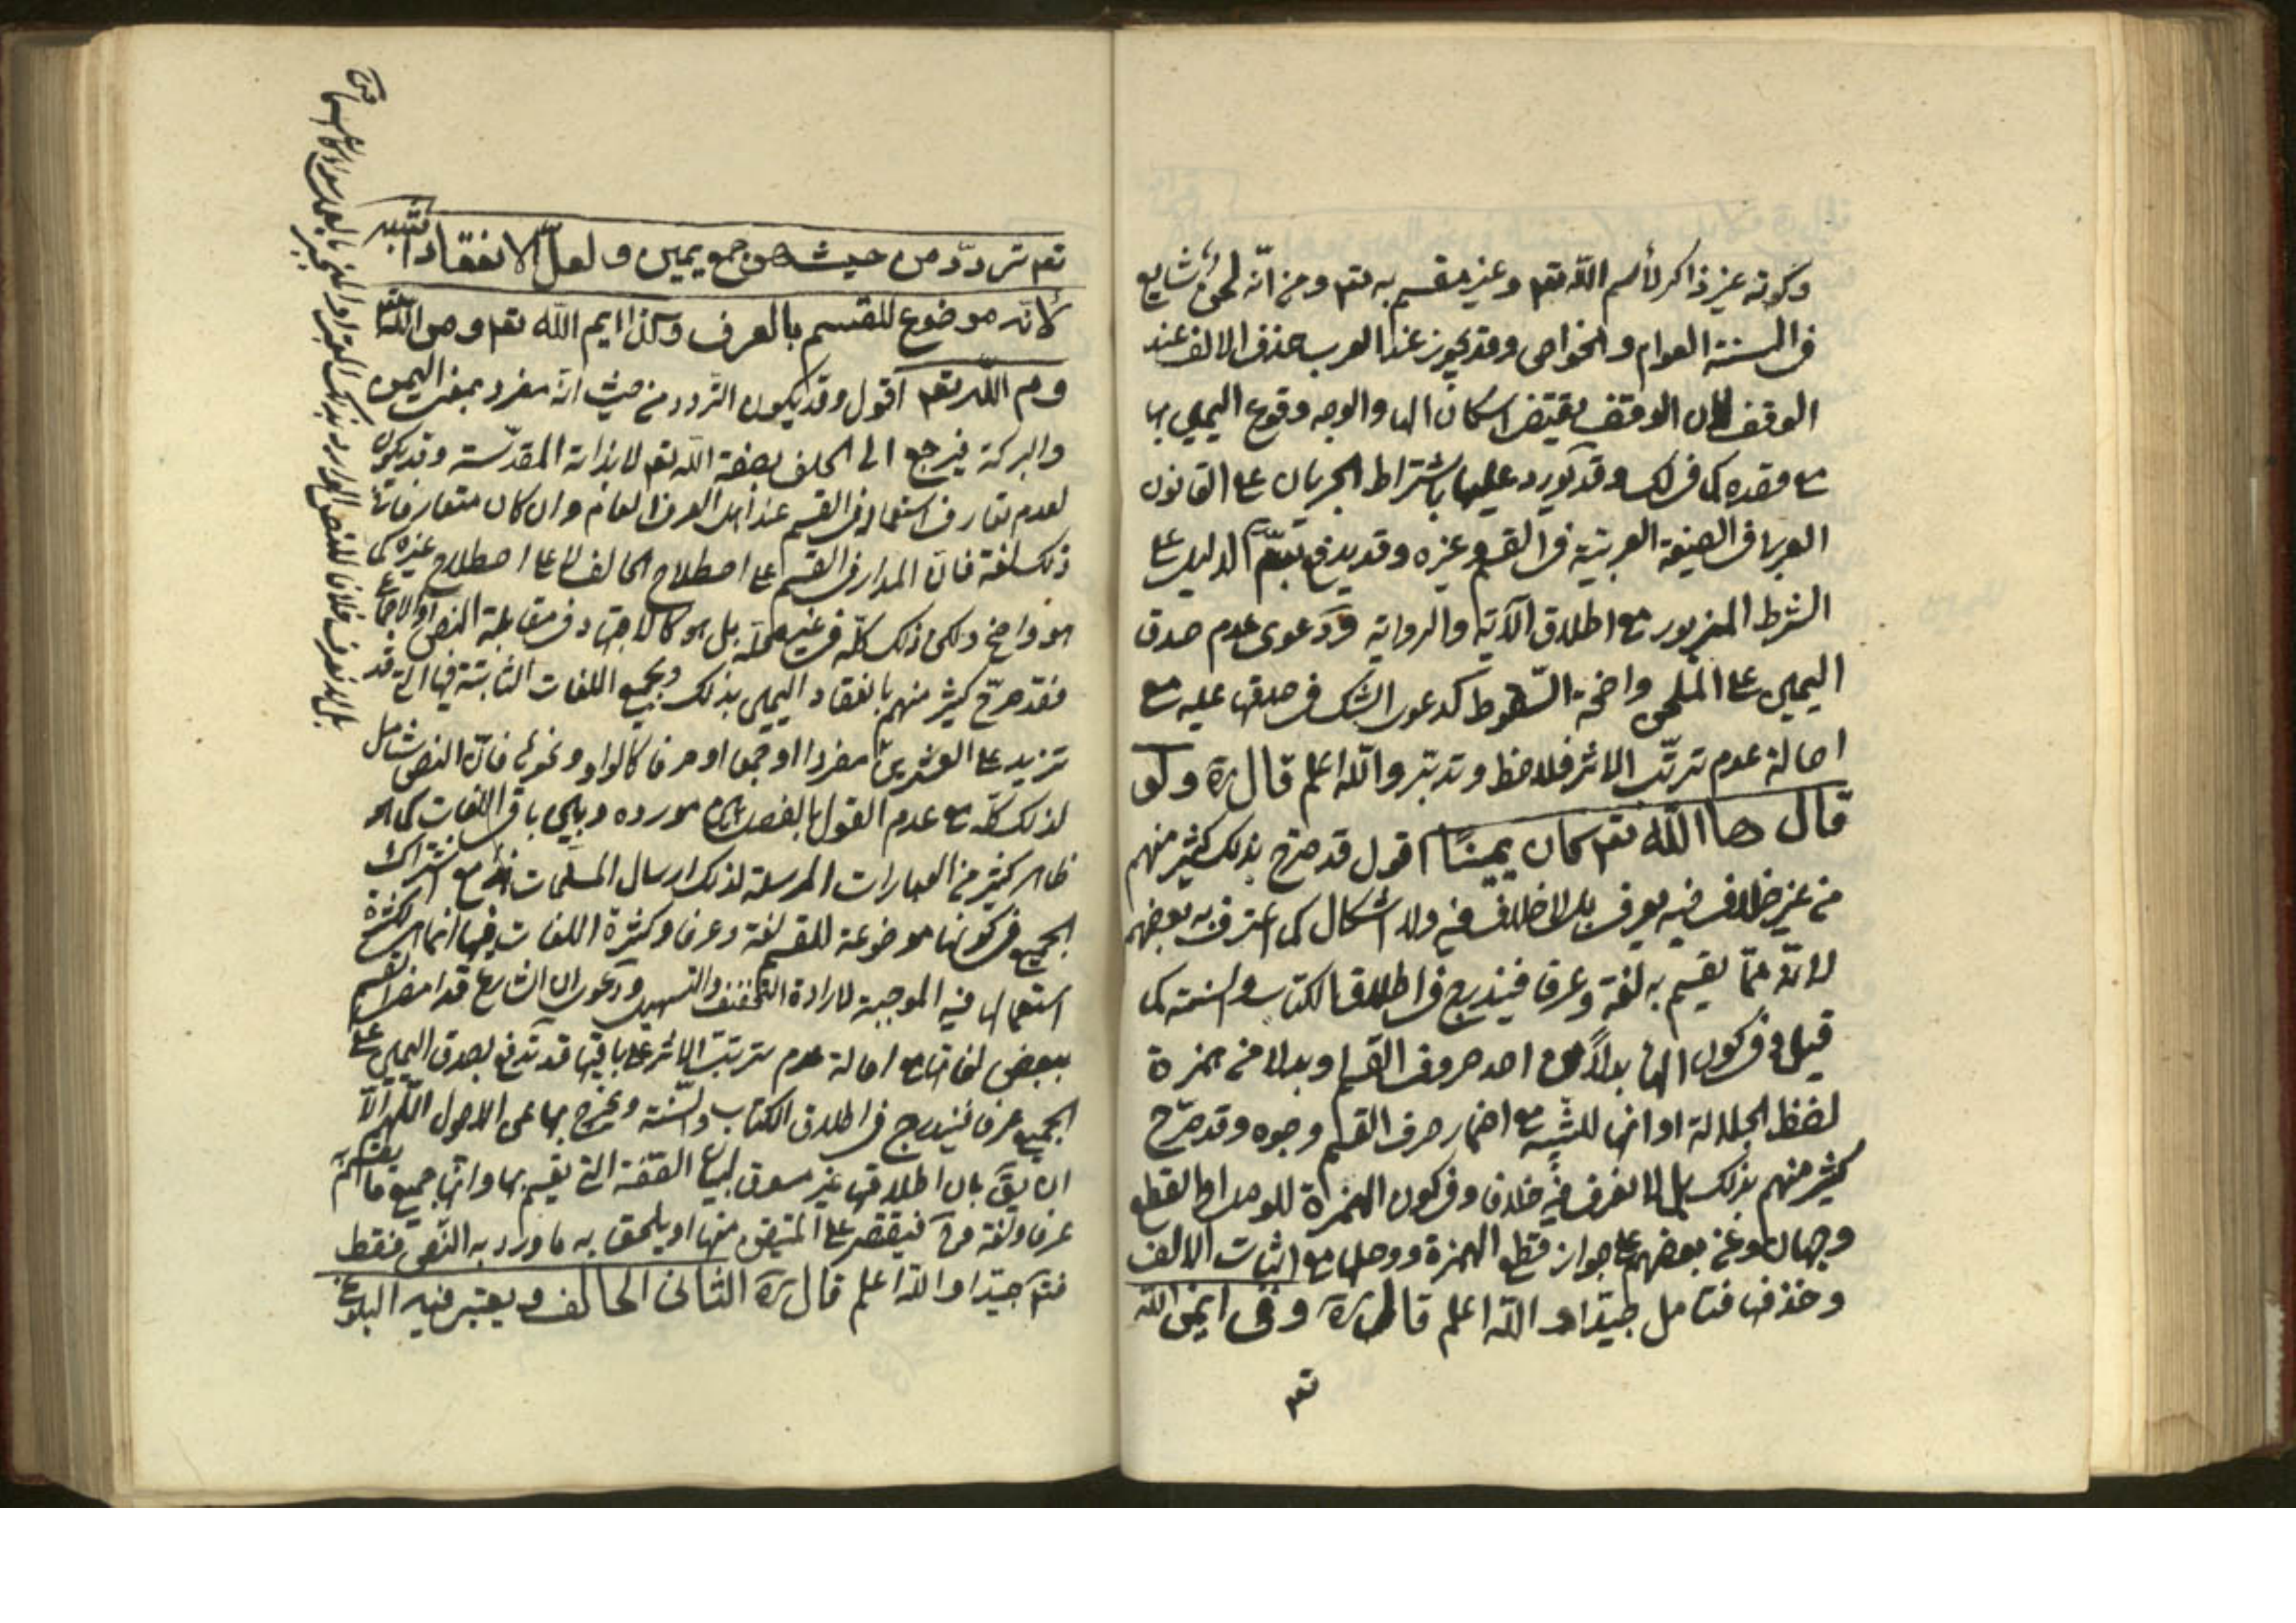 وكونه غير ذاكر لأسم الله تعم وغير مقسم به تعم ومن انّه لحن شايع
في السنة العوام والخواص وقد يجوز عند العرب حذف الالف عند
الوقف لان الوقف يقتضي اسكان الهاء والوجه وقوع اليمين بها
مع قصده كما في لك وقد يورد عليها باشتراط الجريان على القانون
العربي في الصيغة العربية في القسم وغيره وقد يدفع بعدم الدليل على
الشرط المزبور مع اطلاق الآية والرواية ودعوى عدم صدق
اليمين على الملحون واضحة السّقوط كدعوى الشك في صدقها عليه مع
اصالة عدم ترتّب الاثر فلاحظ وتدبّر والله اعلم قال ره ولو
قال ها الله تعم كان يمينًا اقول قد صرّح بذلك كثير منهم
من غير خلاف فيه يعرف بل لا خلاف فيه ولا اشكال كما اعترف به بعضهم
لانّه ممّا يقسم به لغة وعرفا فيندرج في اطلاق الكتاب والسنة كما
قيل وفي كون الهاء بدلاً من احد حروف القسم او بدلا من همزة
لفظ الجلالة او انها للتنبيه مع اضمار حرف القسم وجوه وقد صرّح
كثير منهم بذلك بل لا نعرف فيه خلافا وفي كون الهمزة للوصل او القطع
وجهان وعن بعضهم على جواز قطع الهمزة ووصلها مع اثبات الالف
وحذفها فتامل جيّدا والله اعلم قال ره وفي ايمن الله
تعم
تعم تردّد من حيث هو جمع يمين ولعلّ الانعقاد اشبه
لانّه موضوع للقسم بالعرف وكذا ايم الله تعم ومن الله تعم
وم الله تعم اقول وقد يكون التردد من حيث انّه مفرد بمعنى اليمن
والبركة فيرجع الى الحلف بصفة الله تعم لا بذاته المقدّسة وقد يكون
لعدم تعارف استعماله في القسم عند اهل العرف العام وان كان متعارفا
ذلك لغة فان المدار في القسم على اصطلاح الحالف لا على اصطلاح غيره كما
هو واضح ولكن ذلك كلّه في غير محلّه بل هو كالاجتهاد في مقابلة النص او الاجماع
فقد صرّح كثير منهم بانعقاد اليمين بذلك وبجميع اللغات الثابتة فيها التي قد
تزيد على العشرين مفردا او جمعا او حرفا كالواو ونحوه فانّ النص شامل
لذلك كلّه مع عدم القول بالفصل بين مورده وبين باقي اللغات كما هو
ظاهر كثير من العبارات المرسلة لذلك ارسال المسلّمات مع اشتراك
الجميع في كونها موضوعة للقسم لغة وعرفا وكثرة اللغات فيها انما هي لكثرة
استعمالها فيه الموجبة لارادة التخفيف والتسهيل ودعوى ان الشارع قد امضى القسم
ببعض لغاتها مع اصالة عدم ترتب الاثر على باقيها قد تدفع بصدق اليمين على
الجميع عرفا فيندرج في اطلاق الكتاب والسّنة ويخرج بها عن الاصول اللّهم الّا
ان يق بان اطلاقها غير مسوق لبيان الصّفة التي يقسم بها وانها جميع ما يقسم
عرفا ولغة فح فيقتصر على المتيقن منها او يلحق به ما ورد به النّص فقط
فتم جيّدا والله اعلم قال ره الثاني الحالف ويعتبر فيه البلوغ